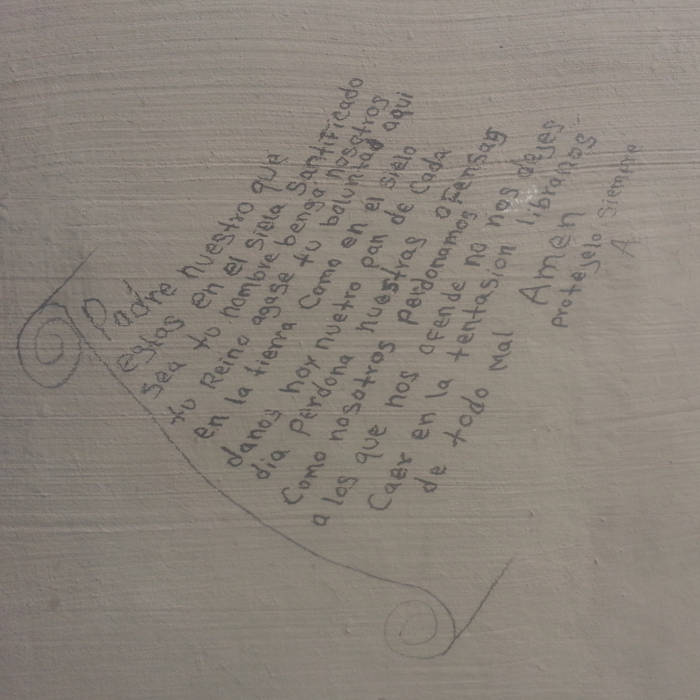 Padre nuestro que
estas en el siela santificado
sea tu nombre benga nosotros
tu Reino agase tu boluntad aqui
en la tierra como en el sielo
danos hoy nuetro pan de cada
dia perdona nuestras ofensas
como nosotros perdonamos
a los que nos ofende no nos dejes
caer en la tentasion libranos
de todo mal
Amen
protegelo siempre
A